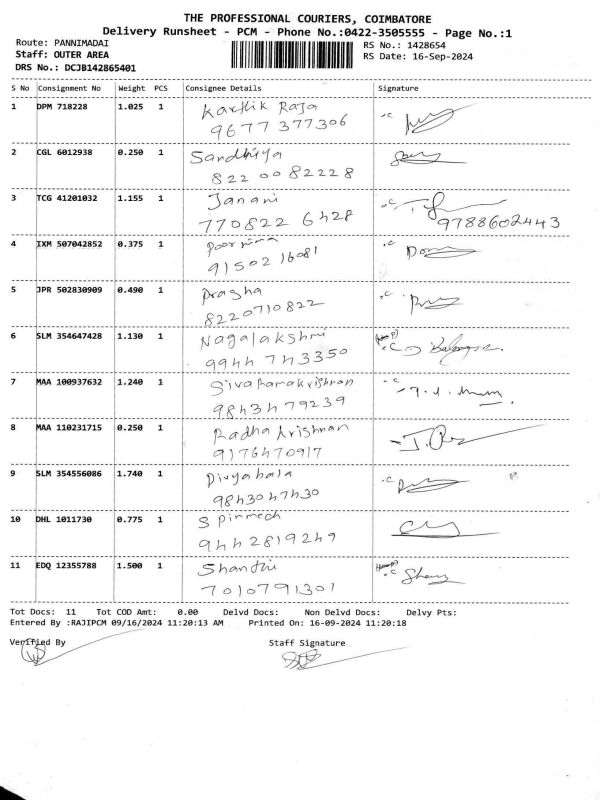 THE PROFESSIONAL COURIERS, COIMBATORE
Delivery Runsheet - PCM - Phone No.:0422-3505555 - Page No.:1
Route: PANNIMADAI
RS No.: 1428654
Staff: OUTER AREA
RS Date: 16-Sep-2024
DRS No.: DCJB142865401
S No Consignment No Weight PCS Consignee Details Signature
1 DPM 718228 1.025 1 Karthik Raja
9677377306
2 CGL 6012938 0.250 1 Sandhiya
8220082228
3 TCG 41201032 1.155 1 Janani
7708226428 9788602443
4 IXM 507042852 0.375 1 Poornima
9150216081
5 JPR 502830909 0.490 1 Pragha
8220710822
6 SLM 354647428 1.130 1 Nagalakshmi
9944743350
7 MAA 100937632 1.240 1 Sivaramakrishnan
9843479239
8 MAA 110231715 0.250 1 Radha krishnan
9176470917
9 SLM 354556086 1.740 1 Divyabala
9843047430
10 DHL 1011730 0.775 1 S pinmech
9442819249
11 EDQ 12355788 1.500 1 Shanthi
7010791301
Tot Docs: 11 Tot COD Amt: 0.00 Delvd Docs: Non Delvd Docs: Delvy Pts:
Entered By :RAJIPCM 09/16/2024 11:20:13 AM Printed On: 16-09-2024 11:20:18
Verified By Staff Signature